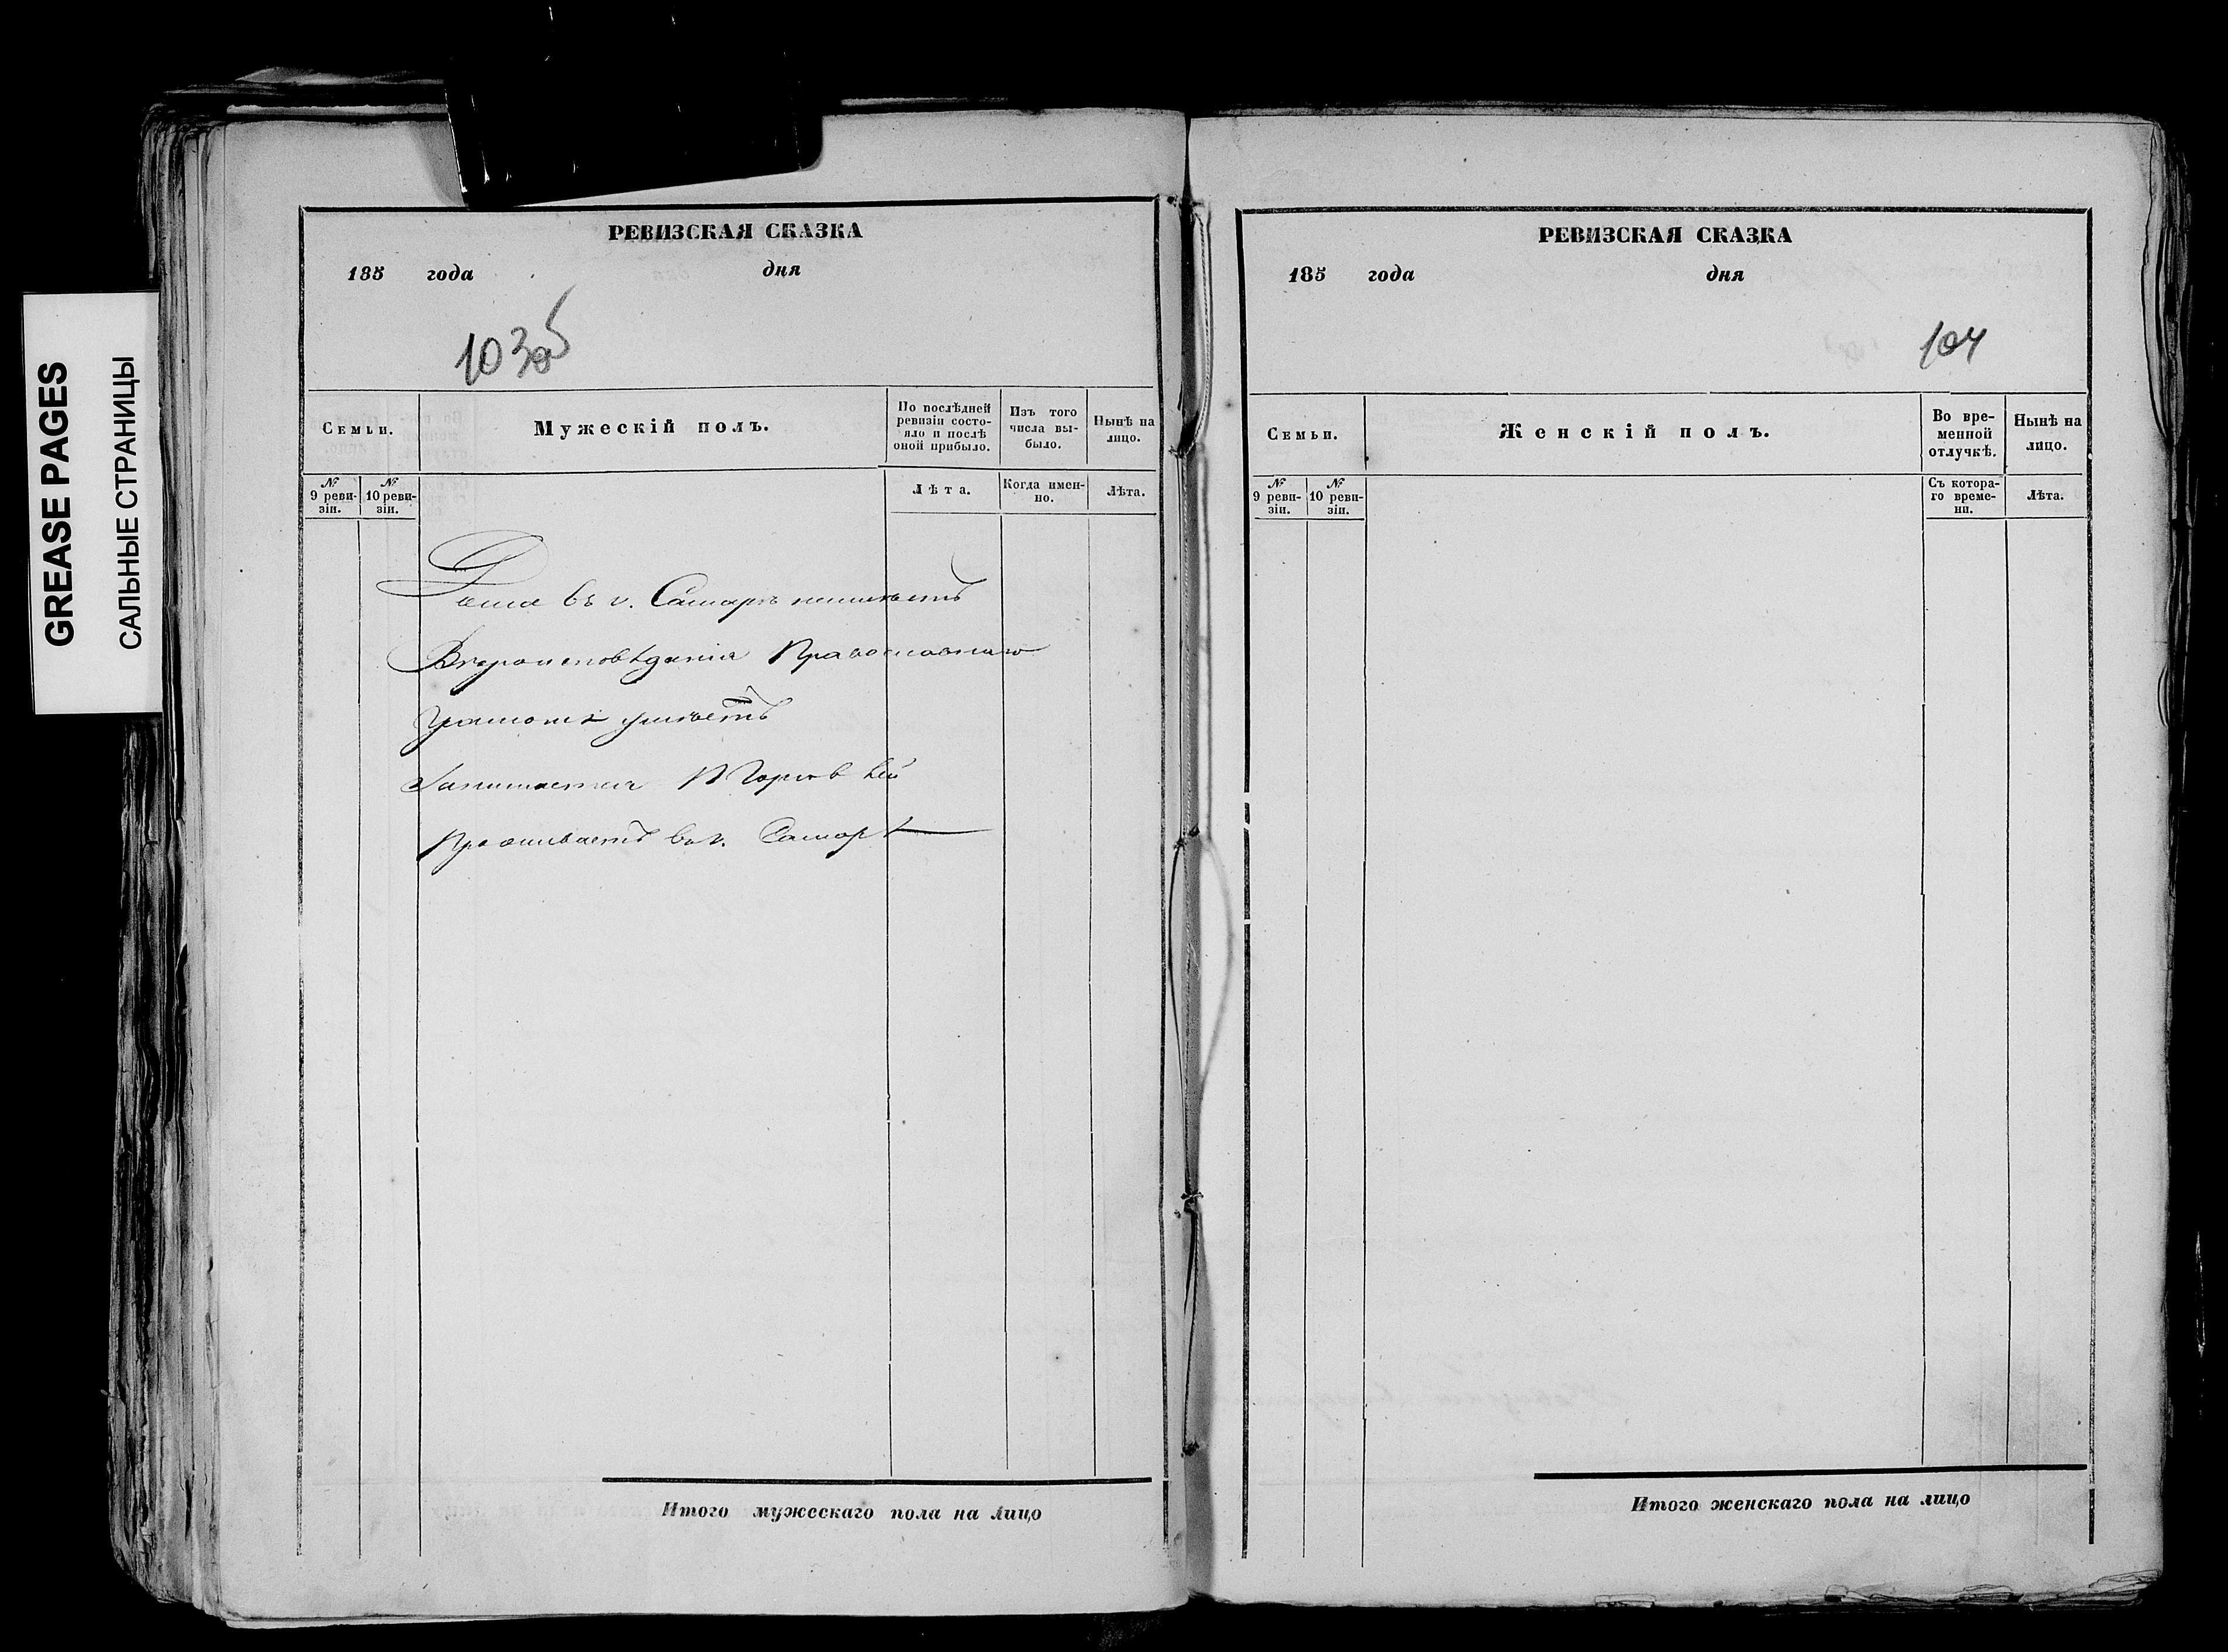 GREASE PAGES
САЛЬНЫЕ СТРАНИЦЫ
РЕВИЗСКАЯ СКАЗКА
185 года дня
103об
Семьи.
Мужескій полъ.
По послѣдней ревизіи состояло и послѣ оной прибыло.
Изъ того числа выбыло.
Нынѣ на лицо.
№ 9 ревизіи.
№ 10 ревизіи.
Лѣта.
Когда именно.
Лѣта.
Дома въ г. Самарѣ неимѣетъ
Вѣроисповѣданія Православнаго
Грамотѣ умѣетъ
Занимается Торговлей
Проживаетъ въ г. Самарѣ
Итого мужескаго пола на лицо
РЕВИЗСКАЯ СКАЗКА
185 года дня
104
Семьи.
Женскій полъ.
Во временной отлучкѣ.
Нынѣ на лицо.
№ 9 ревизіи.
№ 10 ревизіи.
Съ котораго времени.
Лѣта.
Итого женскаго пола на лицо